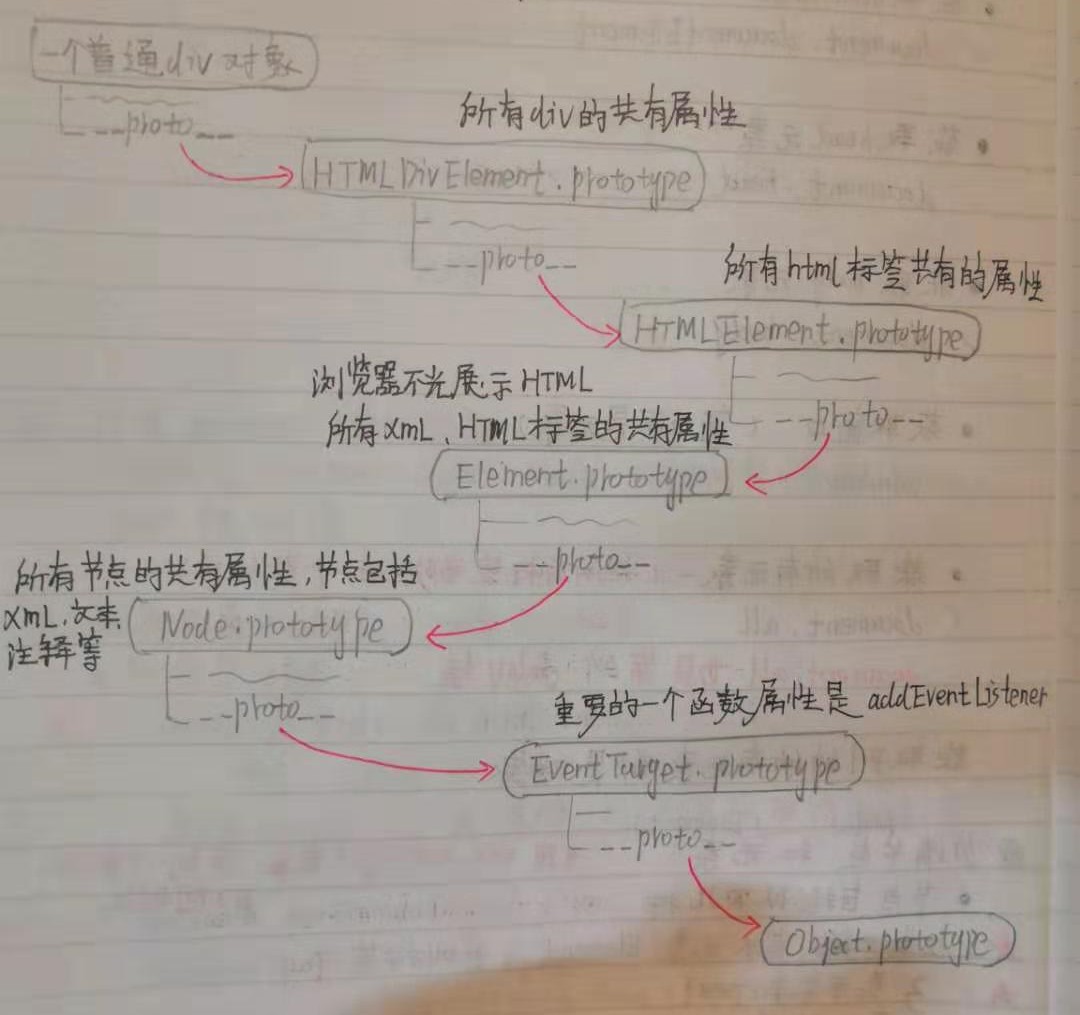 一个普通div对象
__proto__
所有div的共有属性
HTMLDivElement.prototype
__proto__
所有html标签共有的属性
HTMLElement.prototype
__proto__
浏览器不光展示HTML
所有XmL、HTML标签的共有属性
Element.prototype
__proto__
所有节点的共有属性,节点包括
XmL,文本,
注释等
Node.prototype
__proto__
重要的一个函数属性是 addEventListener
EventTarget.prototype
__proto__
Object.prototype